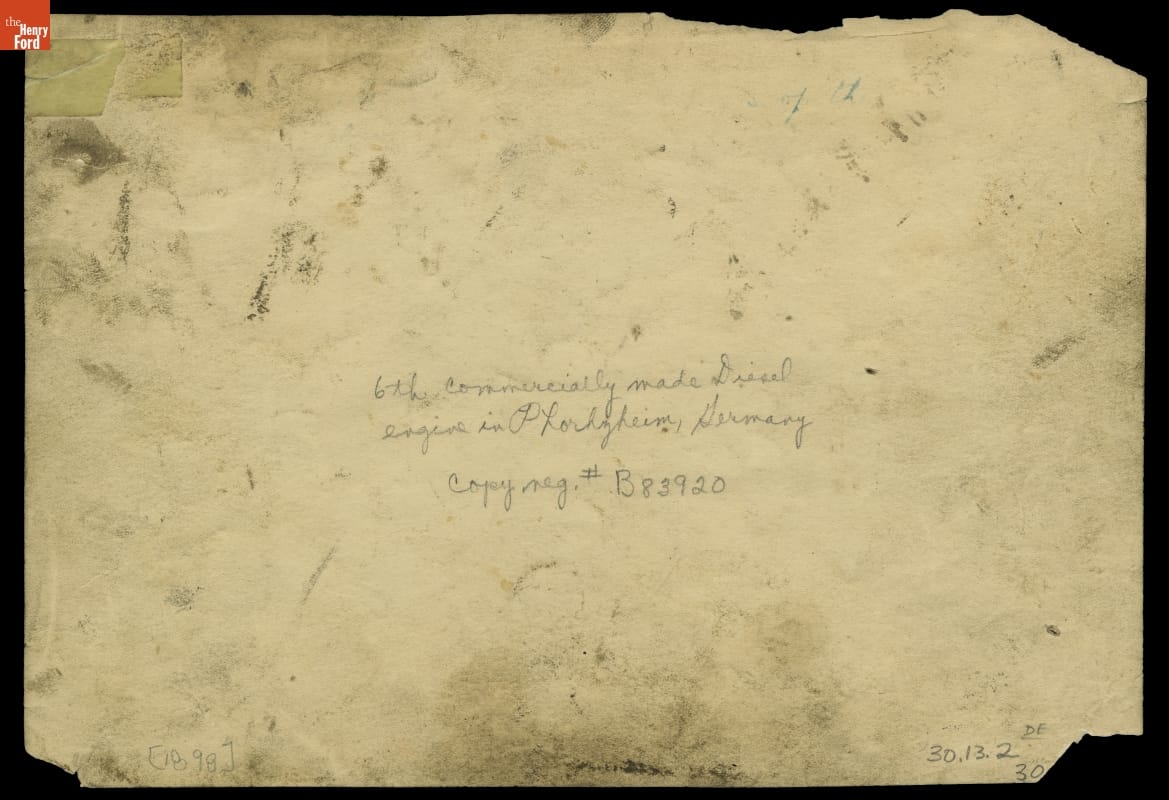 the
Henry
Ford
6th commercially made Diesel
engine in Phorhzheim, Germany
Copy neg. # B83920
[1898]
DF
30.13.2
30